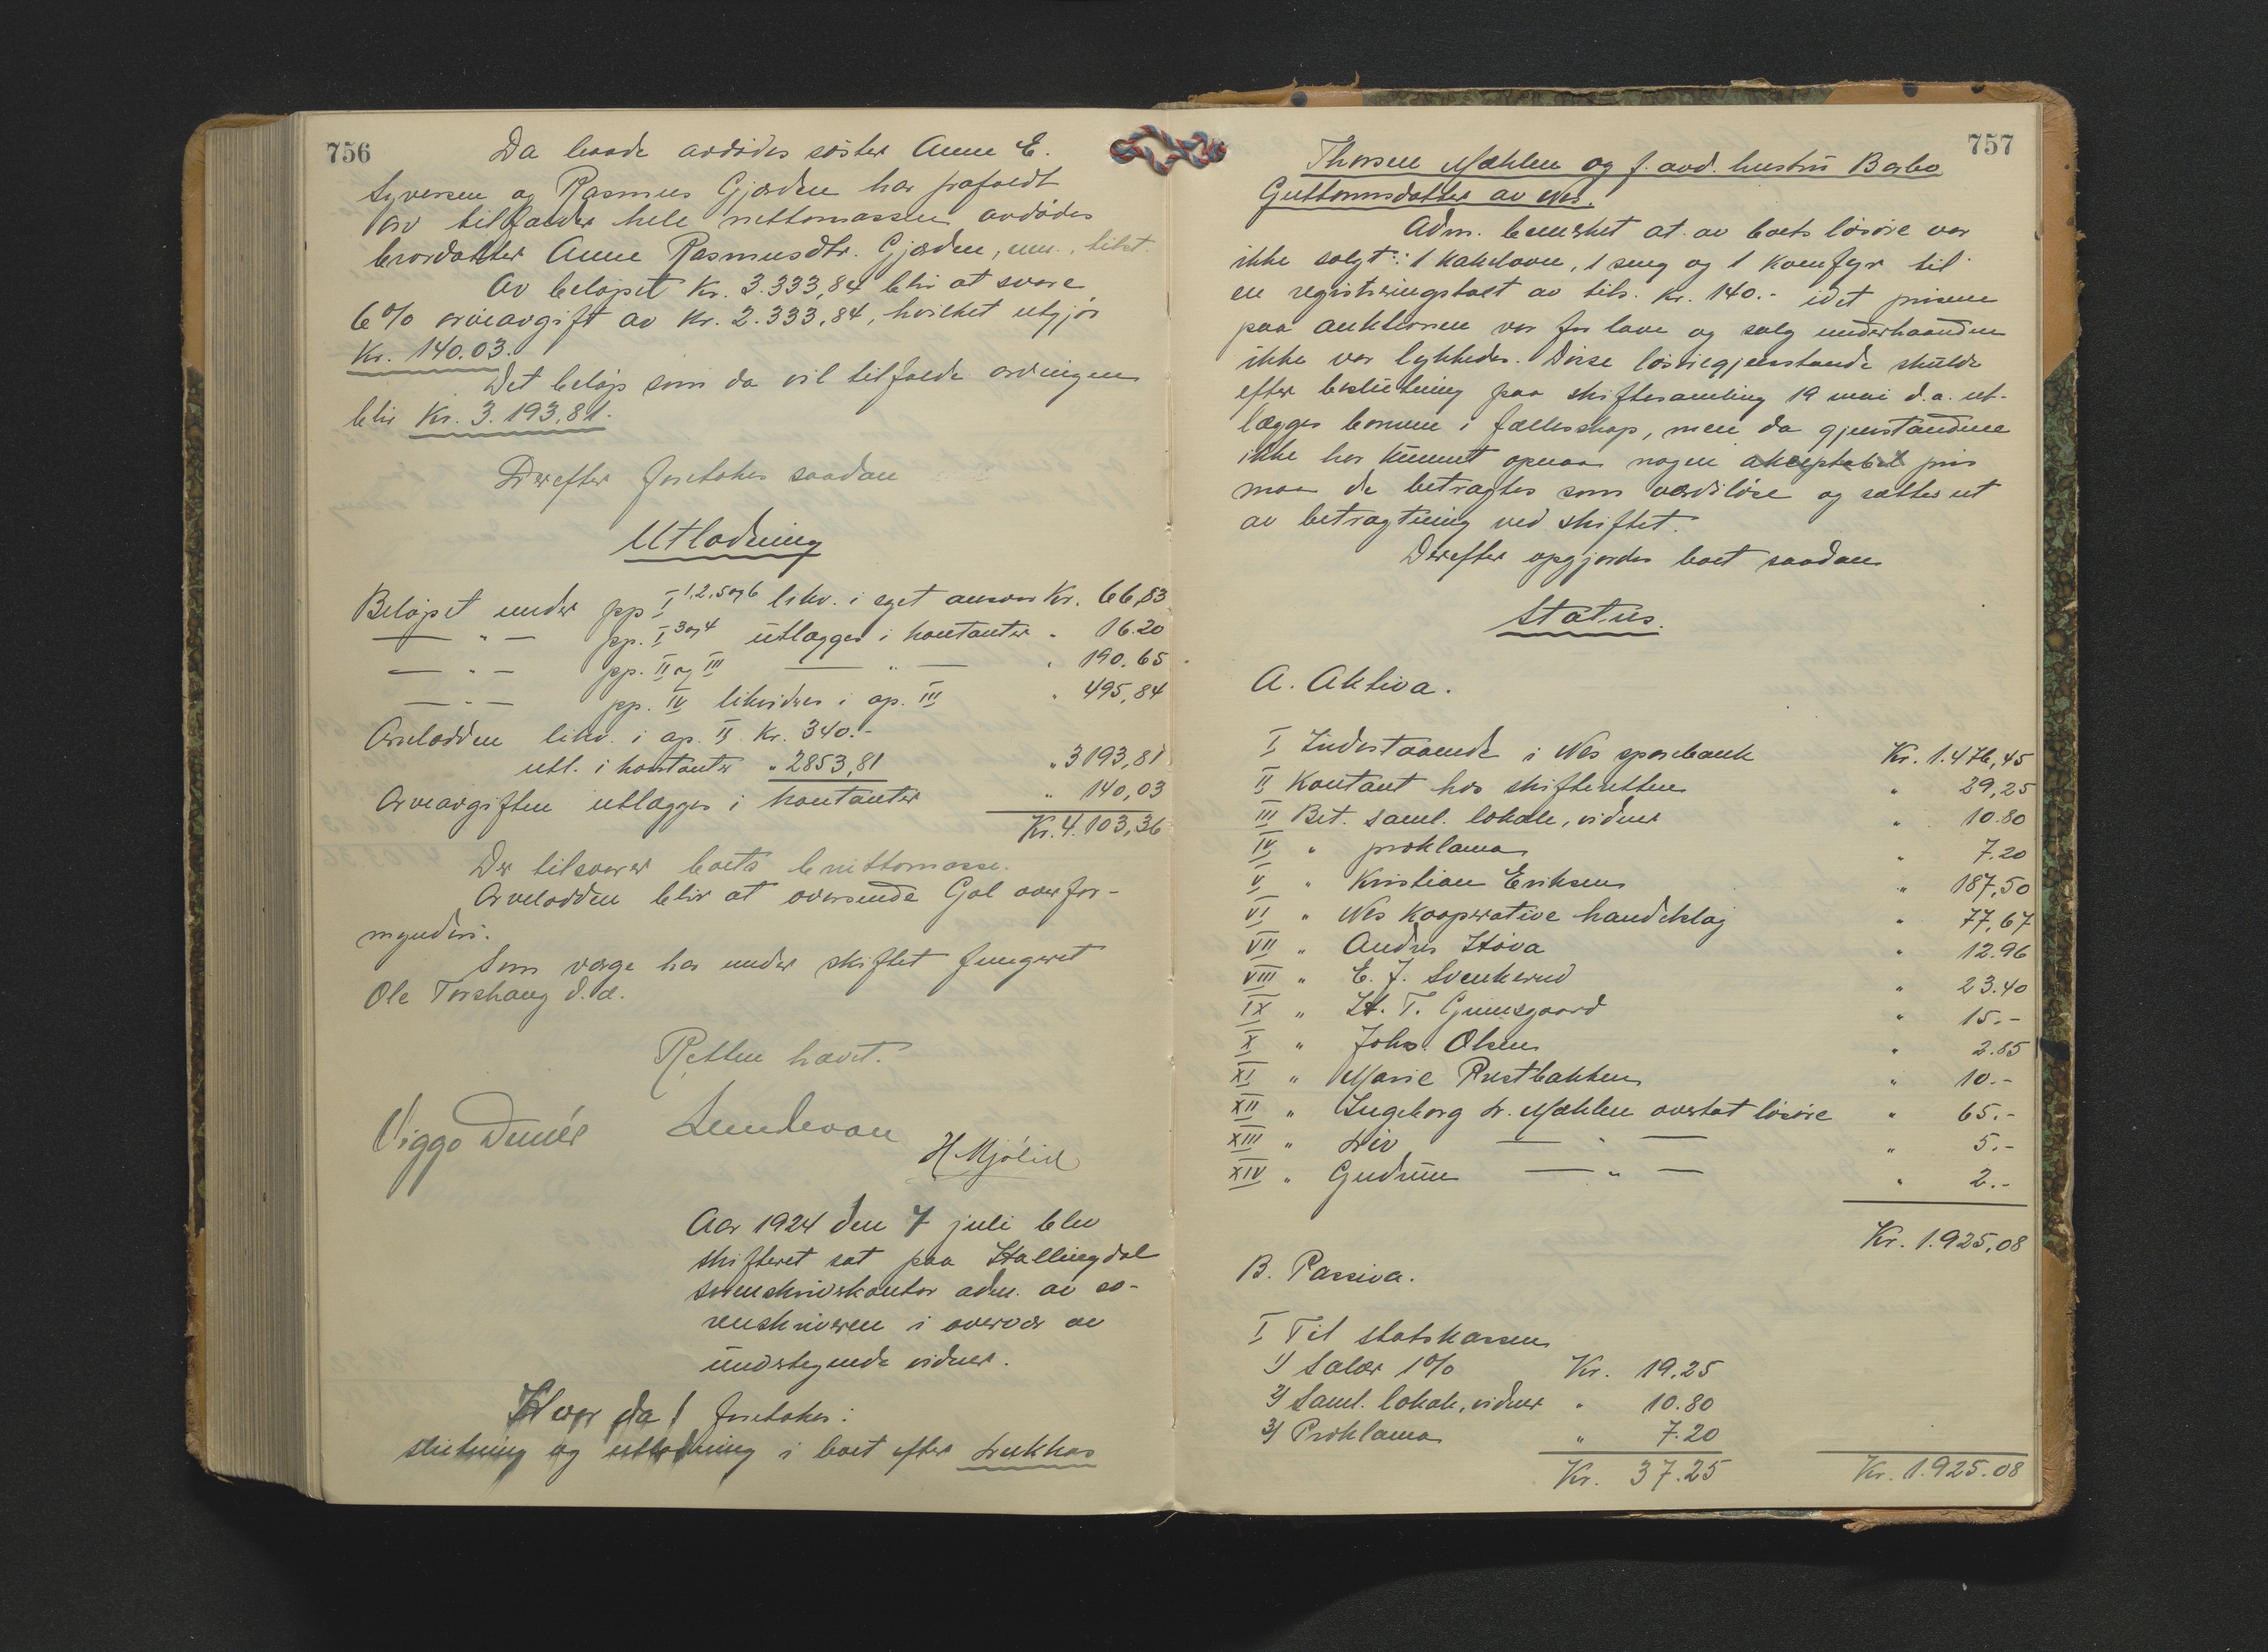 756
Da baade avdødes søster Anne E.
Syversen og Rasmus Gjæden har frafaldt
arv tilfalder hele nettomassen avdødes
brordatter Anne Rasmusdtr. Gjæden, um., tilst.
Av beløpet Kr. 3.333,84 blir at svare
6% arveavgift av Kr. 2.333,84, hvilket utgjør
Kr. 140.03.
Det beløp som da vil tilfalde arvingen
blir Kr. 3.193,81.
Derefter foretokes saadan
Utlodning
Beløpet under pp I 1,2,5 og 6 likv. i eget ansvar Kr. 66,83
— " — pp. I 3 og 4 utlægges i kontanter " 16.20
— " — pp. II og III — " — " 190.65
— " — pp. IV likvideres i ap. III " 495,84
Arvelodden likv. i ap. II Kr. 340.-
utl. i kontanter " 2853,81 " 3193,81
Arveavgiften utlægges i kontanter " 140,03
Kr. 4.103,36
Der tilsvarer boets bruttomasse.
Arvelodden blir at oversende Gol overfor-
mynderi.
Som verge har under skiftet fungeret
Ole Torshaug d.d.
Retten hævet.
Viggo
H Mjølid
Aar 1924 den 7 juli blev
skifteret sat paa Hallingdal
sorenskriverkontor adm. av so-
renskriveren i overvær av
undertegnede vidner.
Hvor da! foretokes:
slutning og utlodning i boet efter enkkas
757
Thorsen Mæhlen og f. avd. hustru Barbo
Guttormsdatter av Nes.
Adm. bemerket at av boets løsøre var
ikke solgt: 1 kakelovn, 1 seng og 1 komfyr til
en registreringstakst av tils. kr. 140.- idet prisene
paa auktionen var for lave og salg underhaanden
ikke var lykkedes. Disse løsøregjenstande skulde
efter beslutning paa skiftesamling 19 mai d.a. ut-
lægges barnene i fællesskap, men da gjenstandene
ikke har kunnet opnaa nogen akceptabel pris
maa de betragtes som værdiløse og sættes ut
av betragtning ved skiftet.
Derefter opgjordes boet saadan
Status.
A. Aktiva.
I Indestaaende i Nes sparebank Kr. 1.476,45
II Kontant hos skifteretten " 29,25
III Bet. saml. lokale, vidner " 10.80
IV " proklama " 7,20
V " Kristian Eriksen " 187,50
VI " Nes kooperative handelslag " 77,67
VII " Andris Høva " 12.96
VIII " E. J. Svenkerud " 23.40
IX " H. T. Grimsgaard " 15.-
X " Johs. Olsen " 2.85
XI " Marie Rustbakken " 10.-
XII " Ingeborg Mæhlen overtat løsøre " 65.-
XIII " Liv — " — " 5.-
XIV " Gudrun — " — " 2.-
Kr. 1.925,08
B. Passiva.
I Til statskassen
1) Salær 1% Kr. 19.25
2) Saml. lokale, vidner " 10.80
3) Proklama " 7.20
Kr. 37.25 Kr. 1.925.08